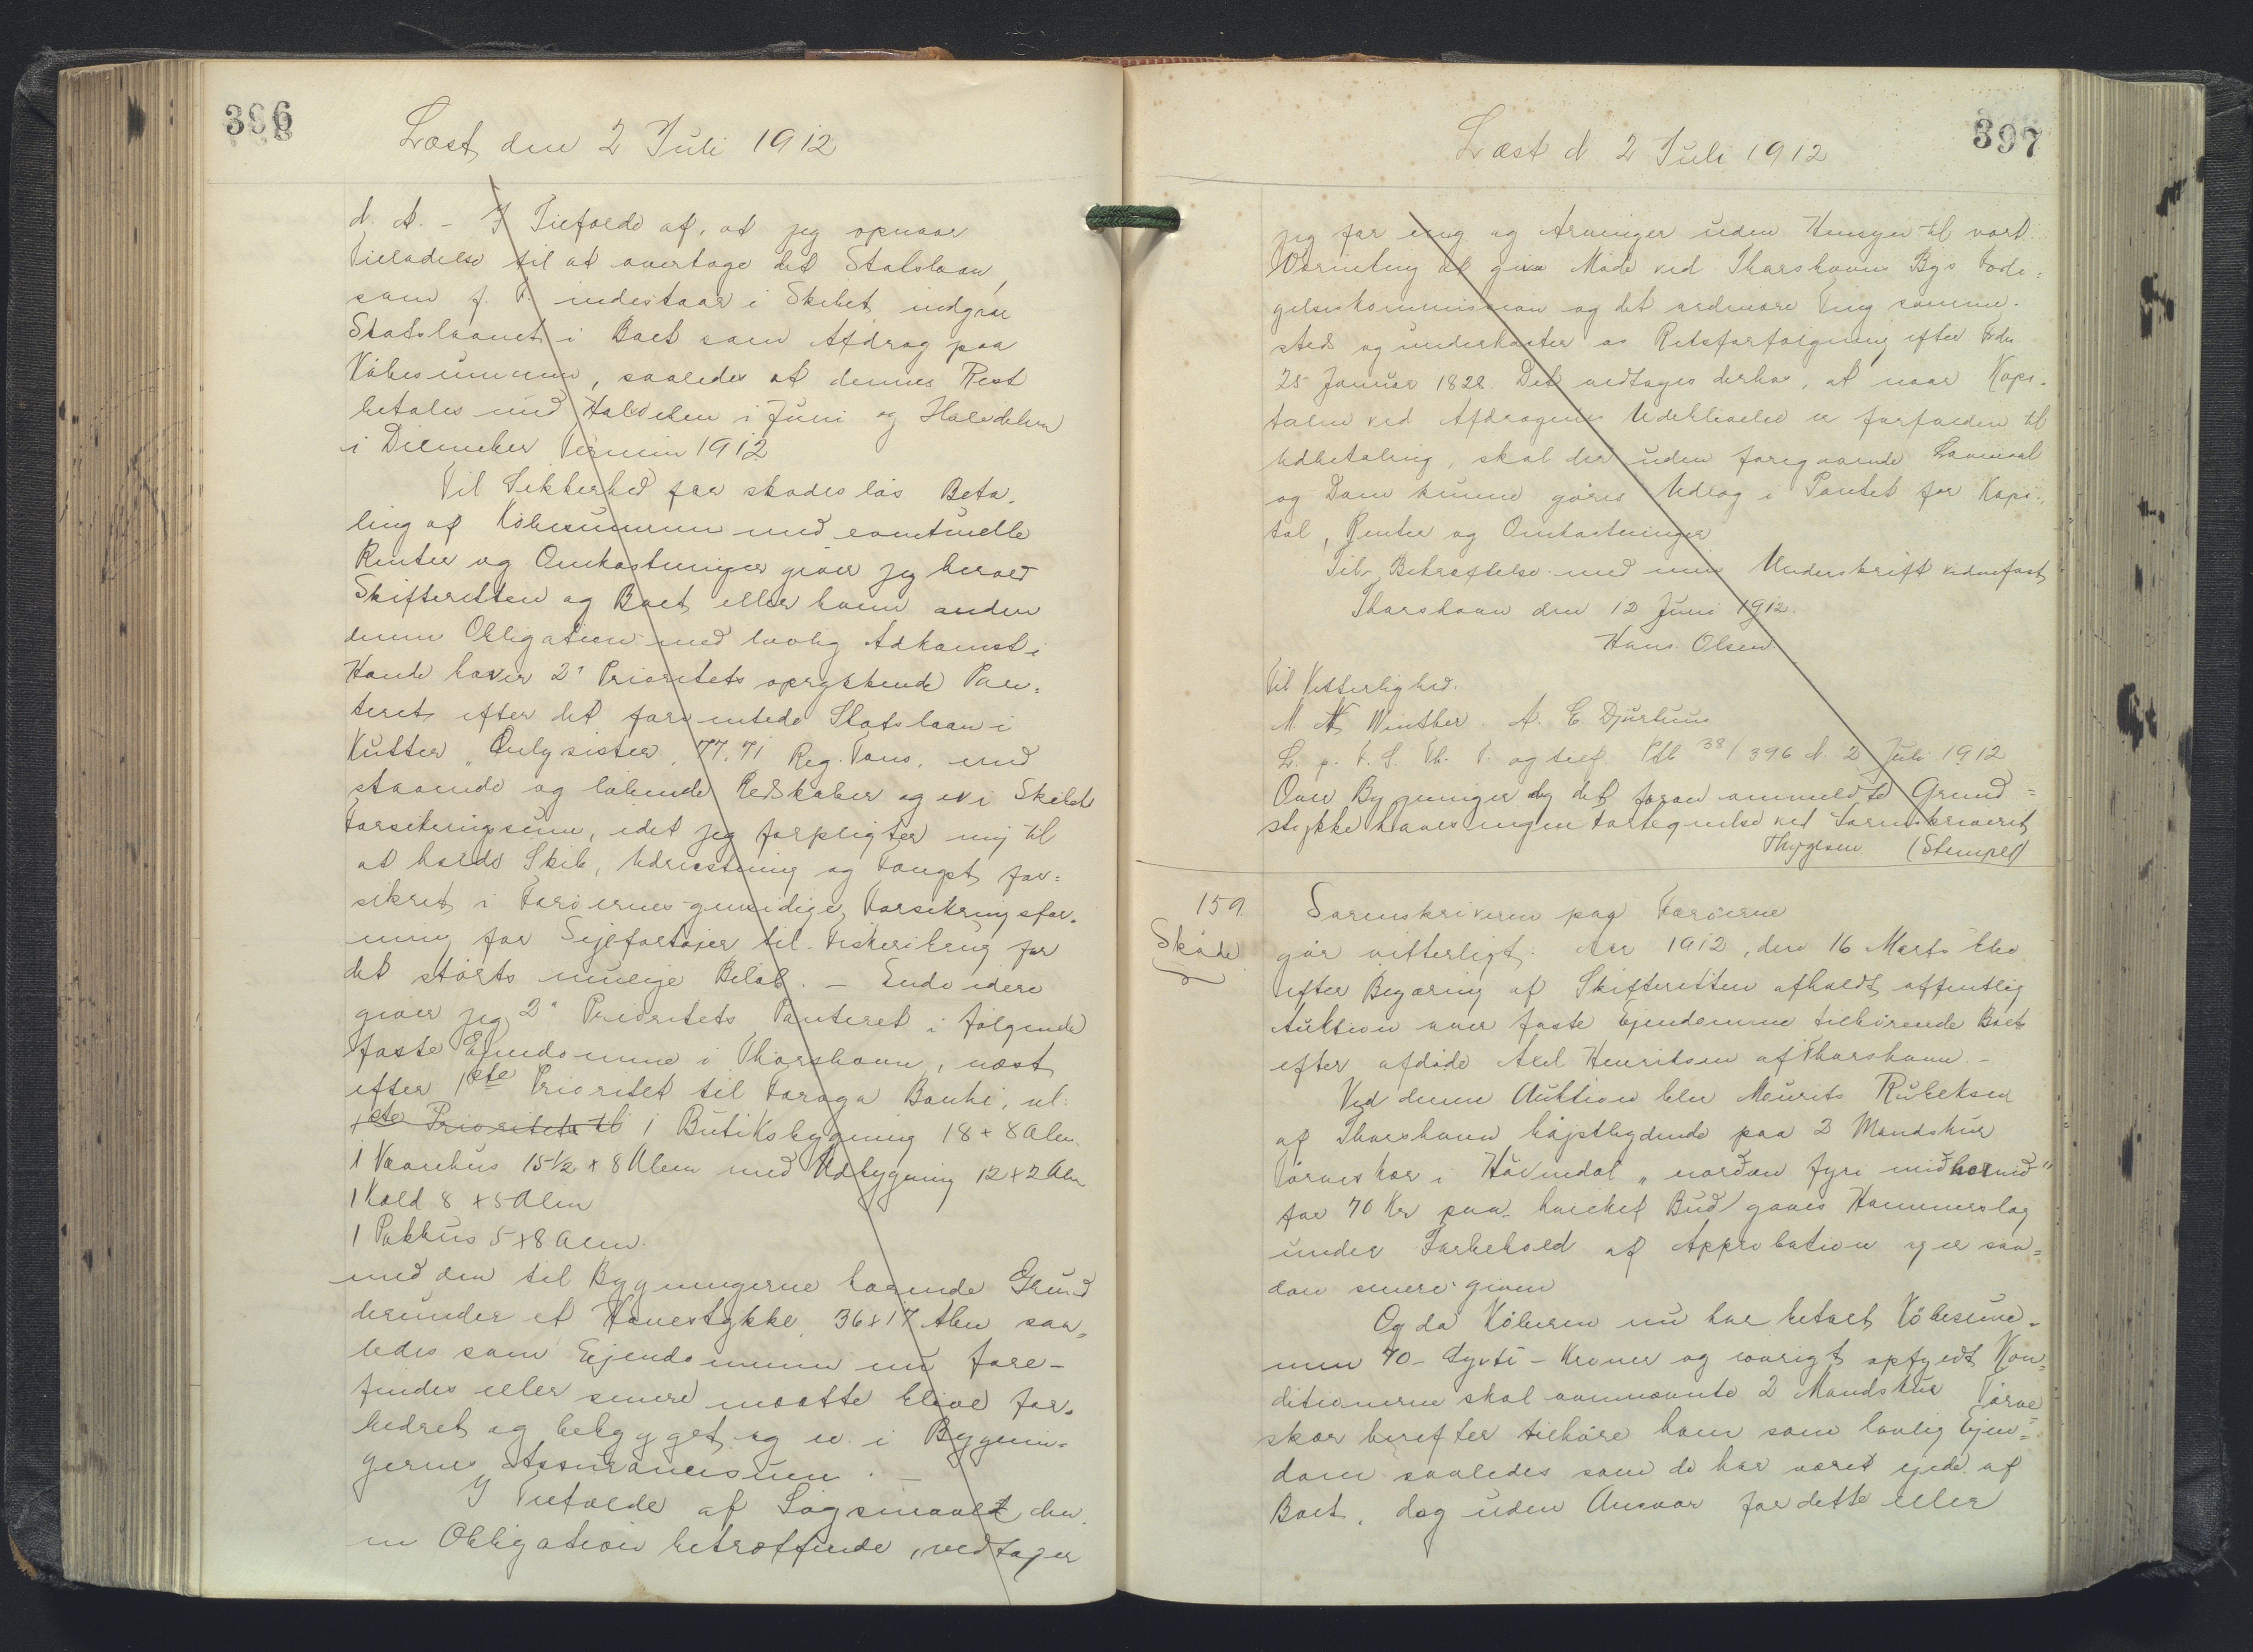 396
Læst den 2 Juli 1912
d. A. - I Tilfælde af, at jeg opnaar
Tilladelse til at overtage det Statslaan,
som f. T. indestaar i Skibet indgaar
Statslaanet i Boet som Afdrag paa
Købesummen, saaledes at dennes Rest
betales med Halvdelen i Juni og Halvdelen
i December Termin 1912
Til Sikkerhed for skadesløs Beta-
ling af Købesummen med eventuelle
Renter og Omkostninger giver jeg herved
Skifteretten og Boet eller hvem anden
denne Obligation med lovlig Adkomst i
Hænde haver 2' Prioritets oprykkende Pan=
teret efter det forventede Statslaan i
Kutter „Onlysister, 77,71 Reg. Tons, med
staaende og løbende Redskaber og ev i Skibets
Forsikringssum, idet jeg forpligter mig til
at holde Skib, Udrustning og Fangst for=
sikret i Færøernes gensidige Forsikringsfor-
ning for Sejlfartøjer til Fiskeribrug for
det størst mulige Beløb. - Endvidere
giver jeg 2' Prioritets Panteret i følgende
faste Ejendomme i Thorshavn, næst
efter 1ste Prioritet til Føroya Banki, nl:
1ste Prioritets til 1 Butiksbygning 18 x 8 Alen
1 Vaanhus 15½ x 8 Alen med Udbygning 12 x 2 Alen
1 Kold 8 x 5 Alen
1 Pakhus 5 x 8 Alen.
med den til Bygningerne hørende Grund
herunder et Havestykke 36 x 17 Alen saa=
ledes som Ejendommen nu fore-
findes eller senere maatte blive for-
bedret og bebygget og ev. i Bygnin-
gernes Assurancesum. -
I Tilfælde af Søgsmaal den-
ne Obligation betræffende, vedtager
397
Læst d. 2 Juli 1912
jeg for mig og Arvinger uden Hensyn til vort
Værneting at give Møde ved Thorshavns Bys Forli=
gelseskommission og det ordinære Ting samme-
steds og underkaster os Retsforfølgning efter Fdn
25 Januar 1828. Det vedtages derhos, at naar Kapi-
talen ved Afdragenes Udeblivelse er forfalden til
Udbetaling, skal der uden foregaaende Lovmaal
og Dom kunne gøres Udlæg i Pantet for Kapi-
tal, Renter og Omkostninger
Til Bekræftelse med min Underskrift vidnefast
Thorshavn den 12 Juni 1912.
Hans Olsen
Til Vitterlighed.
M. N Winther A. C. Djurhuus
L. p. F. S. Th. T. og tilf. Ptb 38/396 d. 2 Juli 1912
Over Bygninger og det foran ommeldte Grund=
stykke haves ingen Fortegnelse ved Sorenskriveriet
Thygesen (Stempel)
159
Skøde
Sorenskriveren paa Færøerne
gør vitterligt: Aar 1912, den 16 Marts blev
efter Begæring af Skifteretten afholdt offentlig
Auktion over faste Ejendomme tilhørende Boet
efter afdøde Axel Henriksen af Thorshavn. -
Ved denne Auktion blev Mourits Rubeksen
af Thorshavn højstbydende paa 2 Mandskur
Tørveskær i Høvmdal „norðan fyri miðhornið"
for 70 Kr paa hvilket Bud gaves Hammerslag
under Forbehold af Approbation og er saa=
dan senere given
Og da Køberen nu har betalt Købesum-
men 70 - Syvti - Kroner og iøvrigt opfyldt Kon=
ditionerne skal ovennævnte 2 Mandskur Tørve=
skær herefter tilhøre ham som lovlig Ejen=
dom saaledes som de har været ejede af
Boet, dog uden Ansvar for dette eller